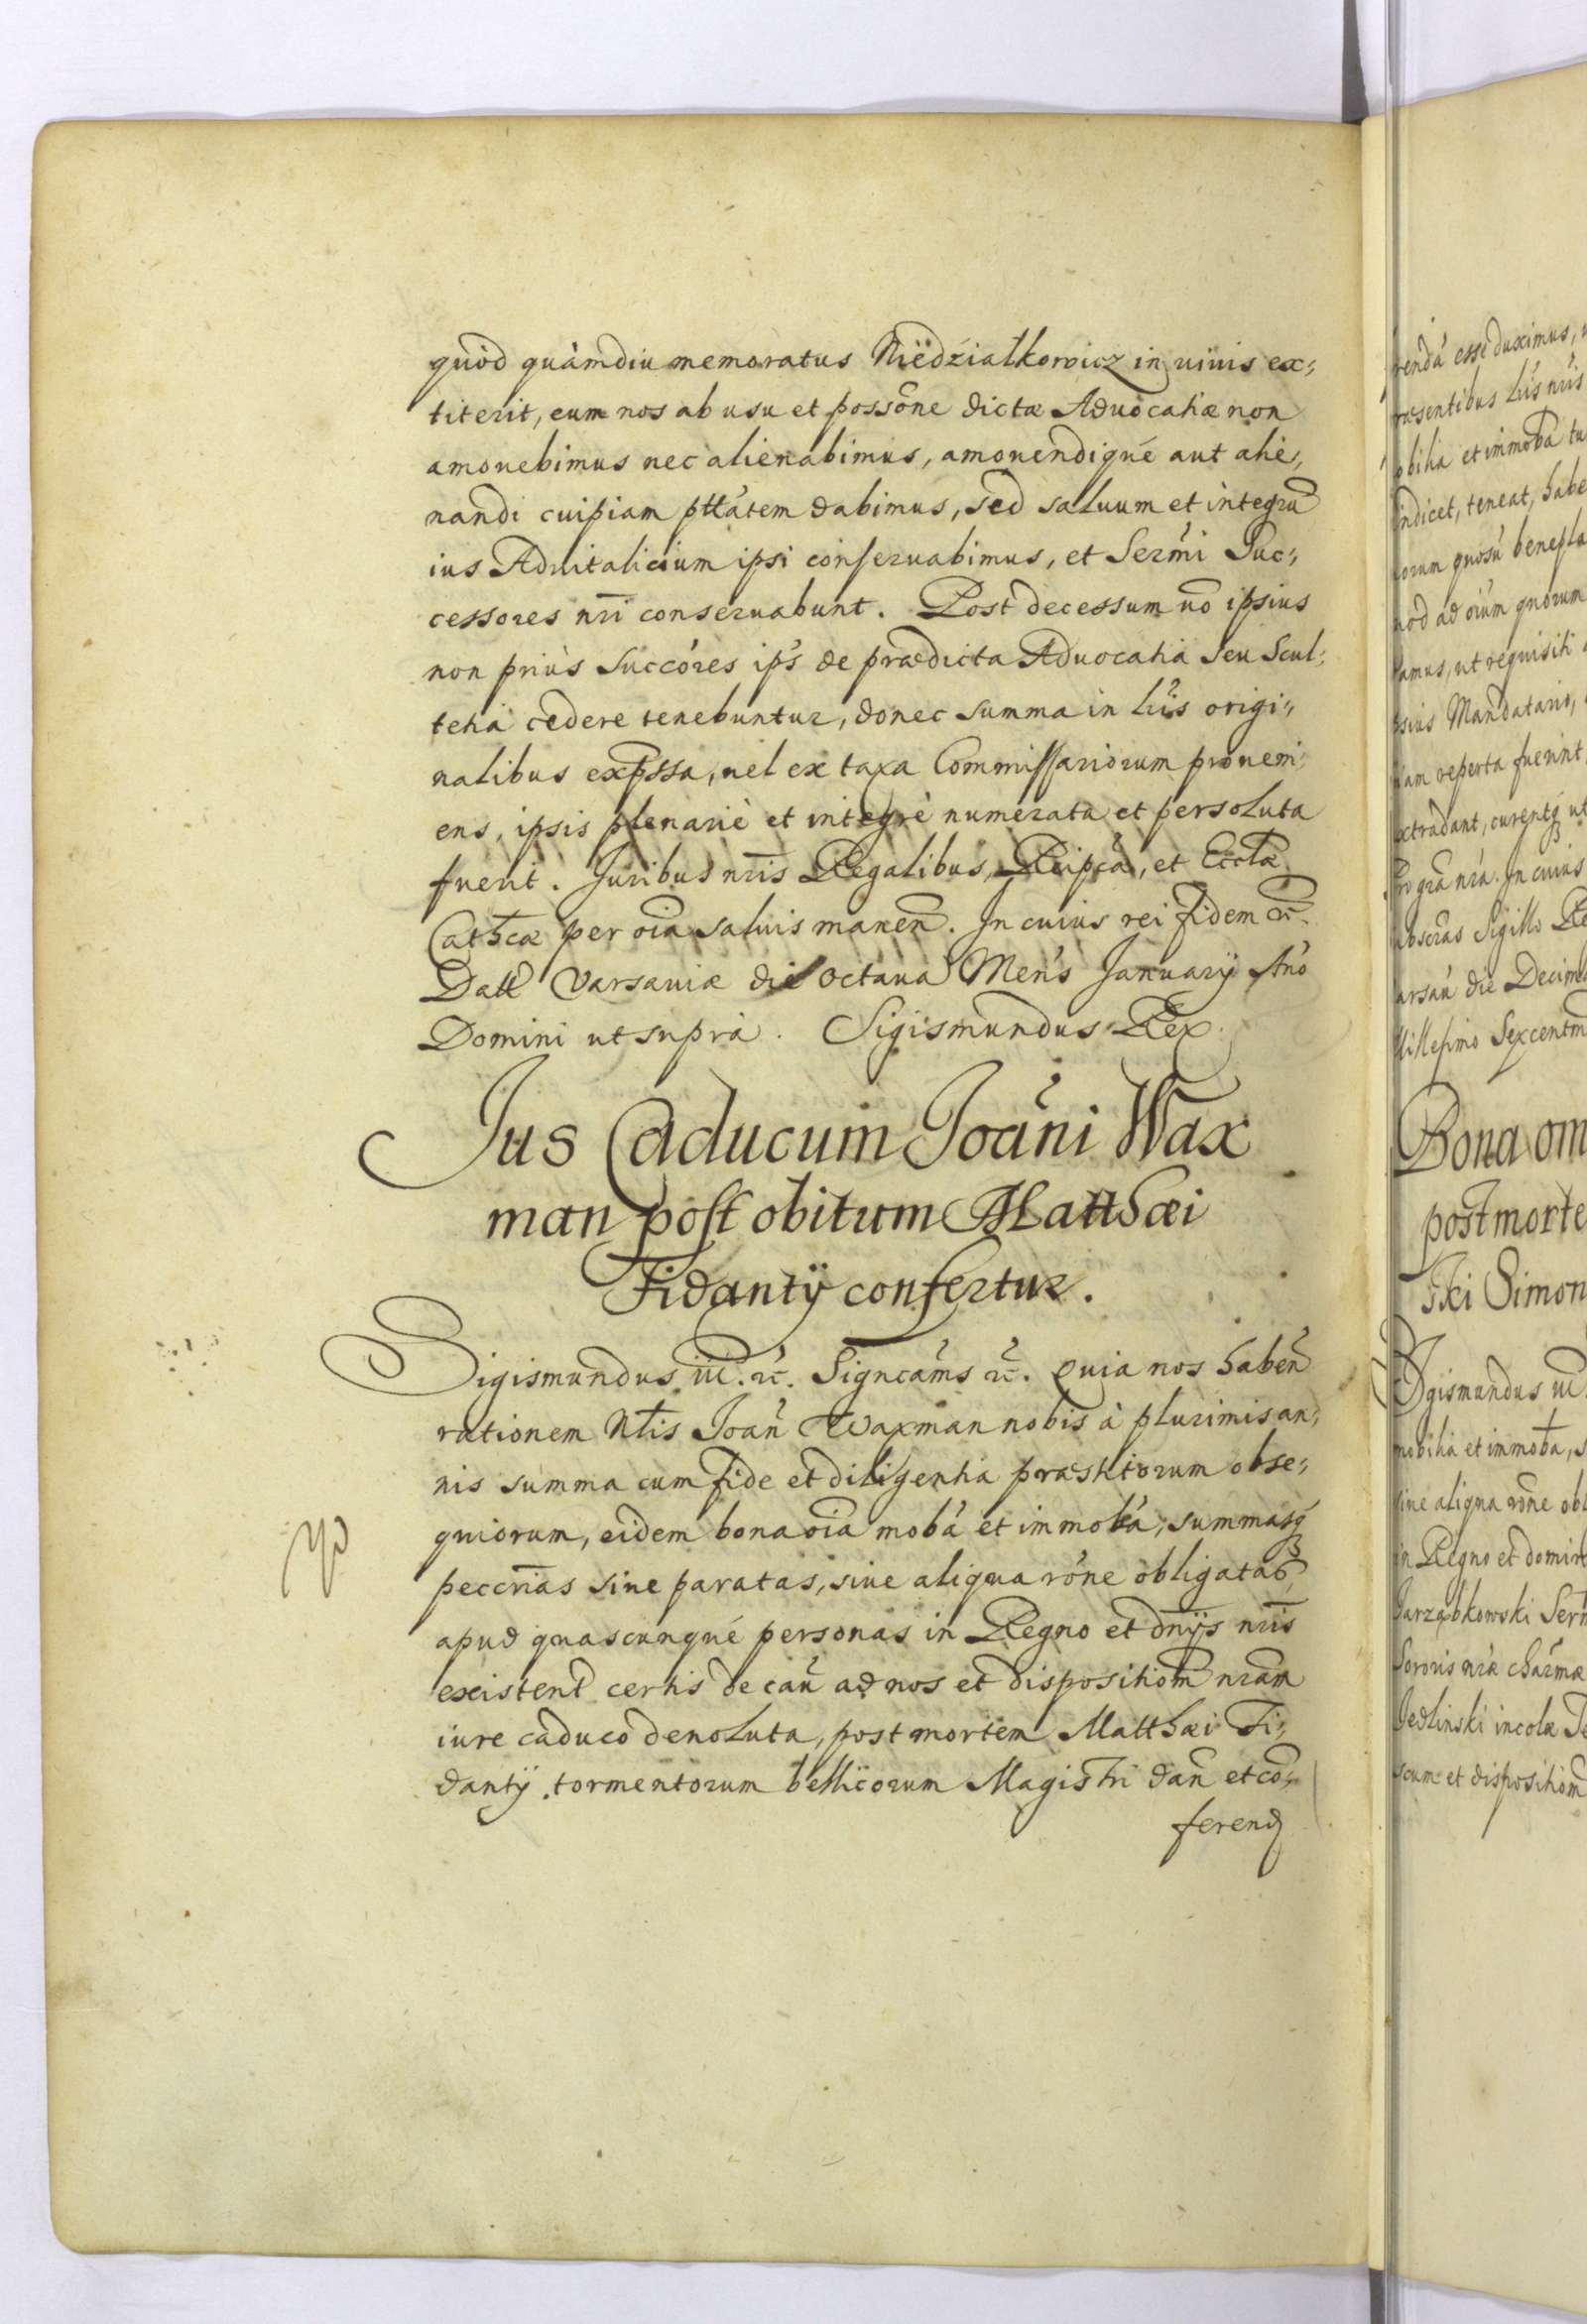 quòd quàmdiu memoratus Niedźiałkowicz in uiuis ex,,
titerit, eum nos ab usu et possõne dictæ Aduocatiæ non
amouebimus nec alienabimus, amouendiqué aut alie,,
nandi cuipiam ptt̃atem dabimus, sed saluum et integrũ
ius Aduitalicium ipsi conseruabimus, et Serm̃i Suc,,
cessores nr̃i conseruabunt. Post decessum uõ ipsius
non priùs Succõres ip̃s de prædicta Aduocatia seu Scul,,
tetia cedere tenebuntur, donec summa in lr̃is origi,,
nalibus exp̃ssa, uel ex taxa Commissariorum proueni,,
ens, ipsis plenariè et integrè numerata et persoluta
fuerit. Juribus nr̃is Regalibus, Reipc̃æ, et Eccl̃æ
Cathcæ per oĩa saluis maneñ. In cuius rei fidem &c̃.
Datt̃ Varsauiæ die octaua Meñs January Añō
Domini ut suprà. Sigismundus Rex.
Jus Caducum Joãni Wax
man post obitum Matthæi
Fidantÿ confertur.
Sigismundus iii. &c̃. Signcãms &c̃. Quia nos habeñ
rationem Nt̃is Joañ Waxman nobis à plurimis an,,
nis summa cum fide et diligentia præstitorum obse,,
quiorum, eidem bona oĩa mobã et immobã, summasq́
peccñias siue paratas, siue aliqua rõne obligatas
apud quascunqué personas in Regno et dñijs nr̃is
existent̃ certis de cau᷉ ad nos et dispositiom̃ nr̃am
iure caduco deuoluta, post mortem Matthæi Fi,,
dantÿ tormentorum bellicorum Magistri dan̄ et cõ,,
ferend̃
rendã esse duximus,
ræsentibus lr̃is nr̃is
obilia et immobã
indicet, teneat, habe
orum quosũ benepla
uod ad oĩum quorum
amus, ut requisiti
psius Mandatario,
reperta fuerint
xtradant, curentq́ ut
gr̃a nr̃a. In cuius
Sigillo Re
arsau᷉ die Decima
illesimo Sexcentm̃
Bona om
post morte
ski Simon
Sgismundus iii
mobilia et immobã,
siue aliqua rõne obl
in Regno et domin
Jarząbkowski Ser
Sororis nr̃æ charm̃æ
Jedlinski incolæ
scum et dispositiom̃